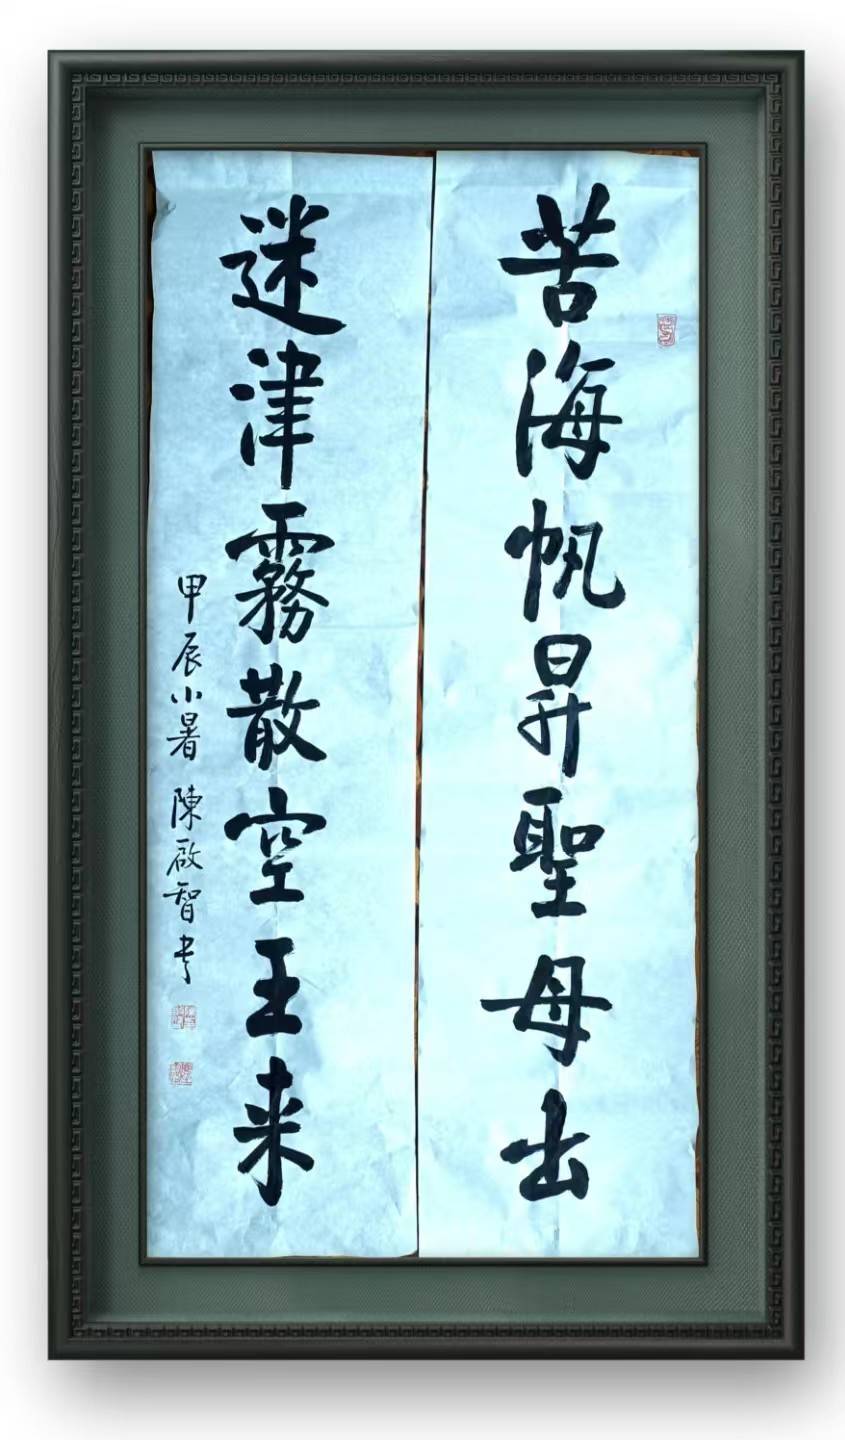 苦海帆昇聖母出
迷津霧散空王来
甲辰小暑 陳啟智书